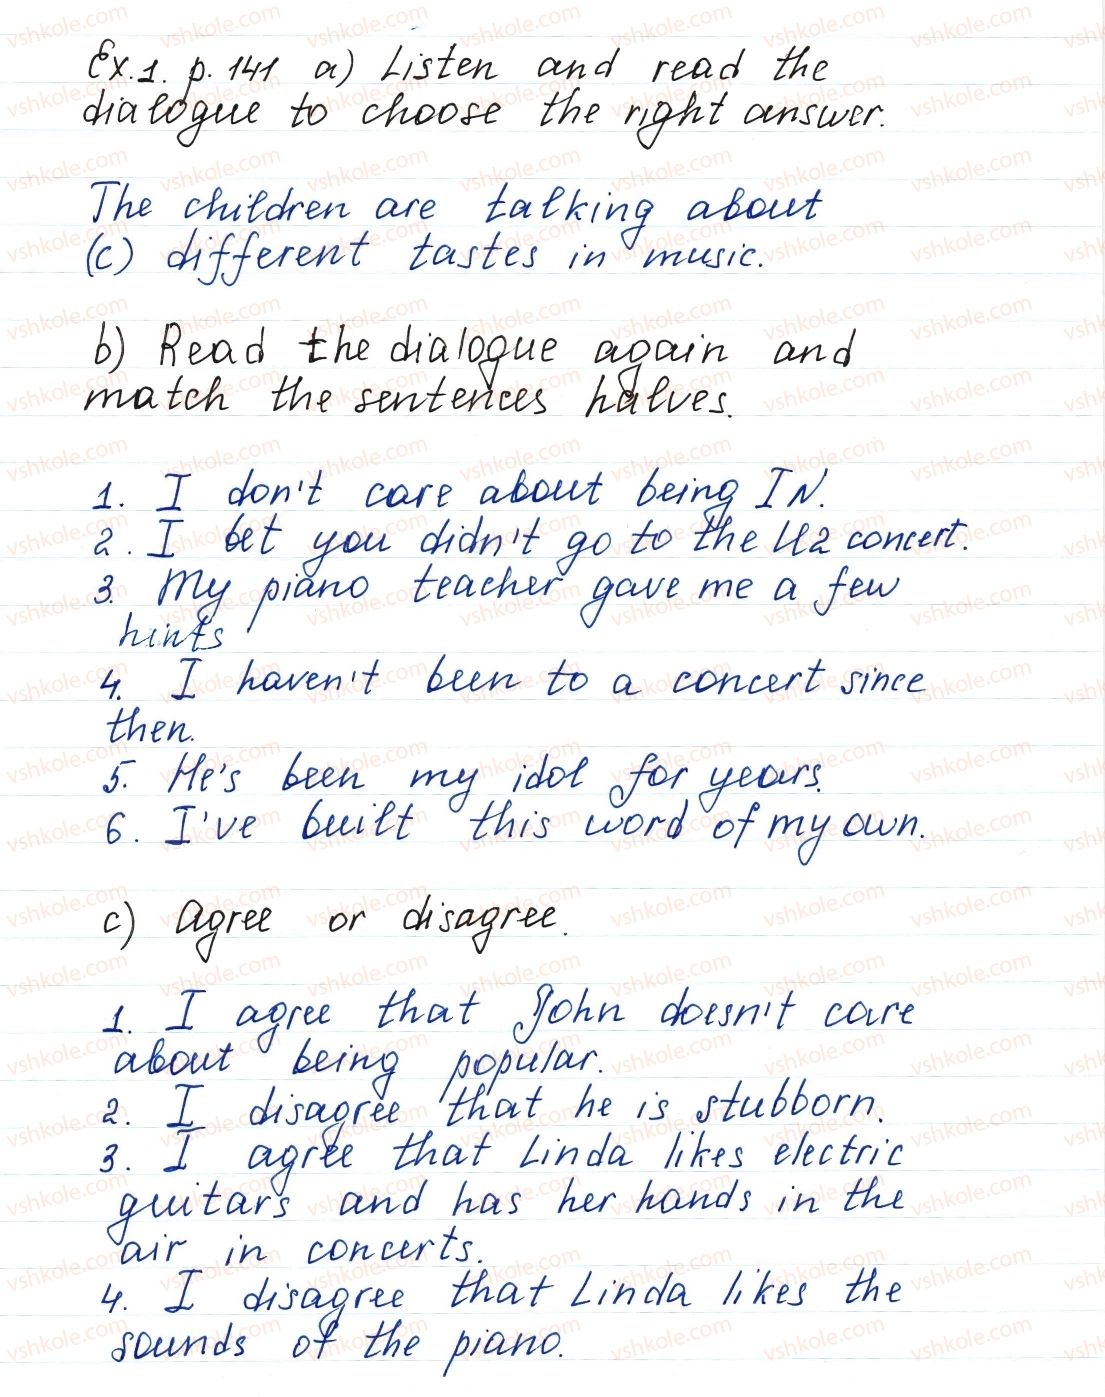 Ex.1. p. 141 a) Listen and read the
dialogue to choose the right answer.
The children are talking about
(c) different tastes in music.
b) Read the dialogue again and
match the sentences halves.
1. I don't care about being IN.
2. I bet you didn't go to the U2 concert.
3. My piano teacher gave me a few
hints
4. I haven't been to a concert since
then.
5. He's been my idol for years.
6. I've built this word of my own.
c) Agree or disagree.
1. I agree that John doesn't care
about being popular.
2. I disagree that he is stubborn.
3. I agree that Linda likes electric
guitars and has her hands in the
air in concerts.
4. I disagree that Linda likes the
sounds of the piano.
vshkole.com